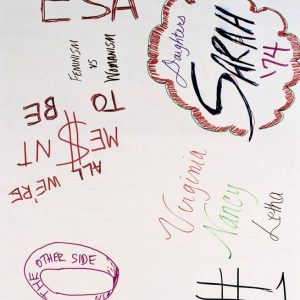 ESA
FEMINISM
VS
WOMANISM
Daughters
SARAH
'74
ALL
WE'RE
ME$NT
TO
BE
Virginia
Nancy
Letha
THE OTHER SIDE